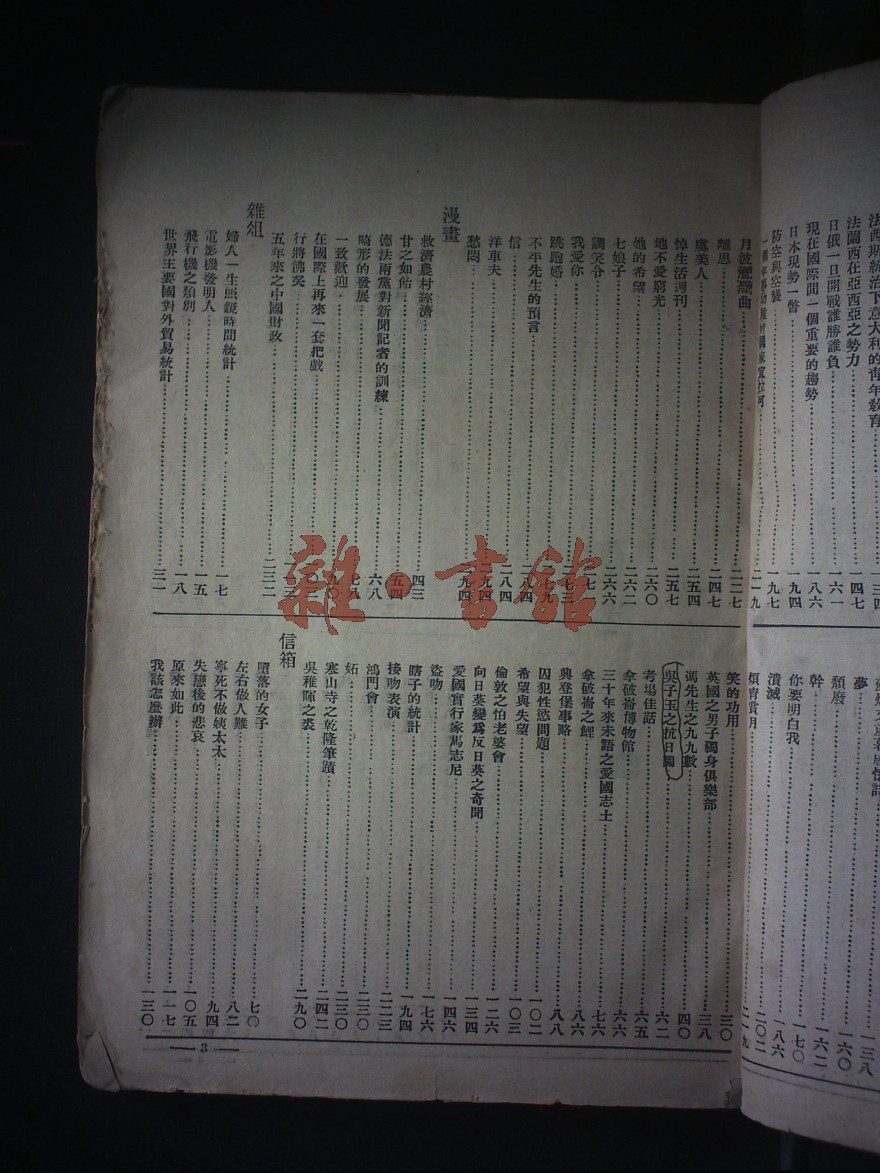 法西斯統治下意大利的青年教育……一三四
法蘭西在亞西亞之勢力……一四七
日俄一旦開戰誰勝誰負……一六一
現在國際間一個重要的趨勢……一八六
日本現勢一瞥……一九四
防空與空襲……一九七
二一九
夢……一三八
頹廢……一六〇
幹……一六二
你要明白我……一七〇
潰滅……一八六
煩宵賞月……二〇二
二一九
月波灔灔曲……二二七
離思……二三八
虞美人……二四七
悼生活週刊……二五七
她不愛窮光……二六〇
她的希望……二六二
七娘子……二六六
調笑令
我愛你
跳跑婚
不平先生的預言……一八四
信……二八四
洋車夫……二九四
愁悶……二九四
漫畫
救濟農村經濟……四三
甘之如飴……五四
德法兩黨對新聞記者的訓練……六八
畸形的發展……七八
一致歡迎……九〇
在國際上再來一套把戲
行將彿矣
五年來之中國財政……二三二
雜俎
婦人一生照鏡時間統計……一七
電影機發明人……一五
飛行機之類別……一八
世界主要國對外貿易統計……三一
笑的功用……三〇
英國之男子獨身俱樂部……三八
馮先生之九九數……四〇
吳子玉之抗日圖……六二
考場佳話……六五
拿破崙博物館……六六
三十年來未語之愛國志士……七六
拿破崙之鯉……八六
興登堡事略……八八
囚犯性慾問題……一〇二
希望與失望……一〇三
倫敦之怕老婆會……一二六
向日葵變爲反日葵之奇聞……一三四
愛國實行家馬志尼……一四六
盜吻……一七六
瞎子的統計……一九四
接吻表演……二二三
鴻門會……二三〇
妬……二三〇
寒山寺之乾隆筆蹟……二四二
吳稚暉之裘……二九〇
信箱
墮落的女子……七〇
左右做人難……八二
寧死不做姨太太……九四
失戀後的悲哀……一〇五
原來如此……一一七
我該怎麼辦……一三〇
3
雜·書館